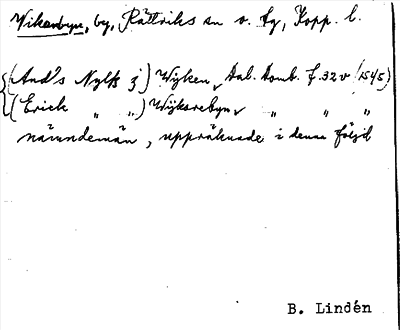 Wikarbyn, by, Rättviks sn o. tg, Kopp. l.
(And's Nylss i) Wijken, Dal. Domb. f. 32 v (1545)
(Erick " ") Wijkarebyn, " " "
nämndemän, uppräknade i denna följd
B. Lindén